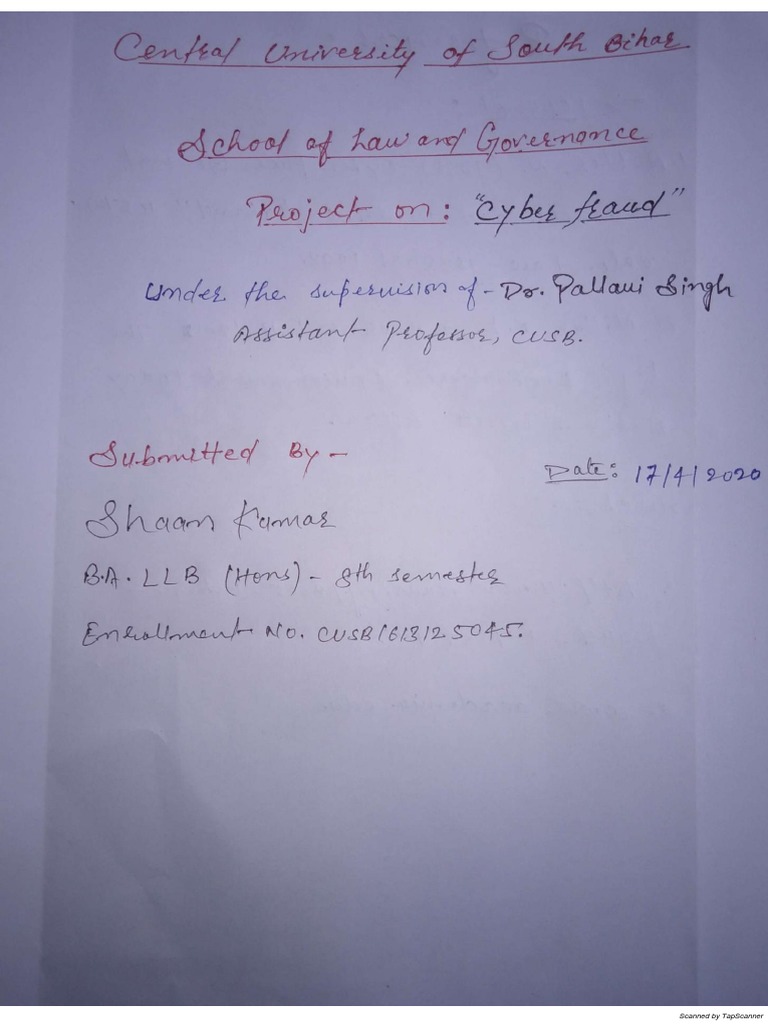 Central University of South Bihar
School of Law and Governance
Project on: "Cyber fraud"
Under the supervision of - Dr. Pallavi Singh
Assistant Professor, CUSB.
Submitted By -
Date: 17/4/2020
Shaan Kumar
B.A. LLB (Hons) - 8th semester
Enrollment No. CUSB1613125045.
Scanned by TapScanner